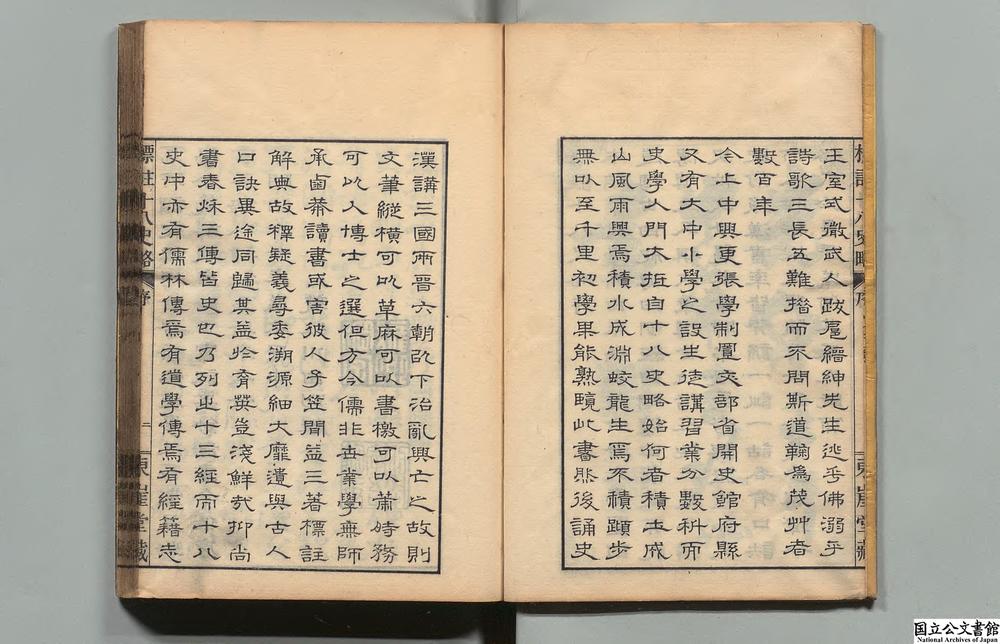 王室式微武人跋扈縉紳先生逃乎佛溺乎
詩歌三長五難措而不問斯道鞠為茂艸者
數百年
今上中興更張學制置文部省開史館府縣
又有大中小學之設生徒講習業分數科而
史學入門大抵自十八史略始何者積土成
山風雨興焉積水成淵蛟龍生焉不積蹞步
無以至千里初學果能熟曉此書然後誦史
漢講三國兩晉六朝以下治亂興亡之故則
文筆縱橫可以草麻可以書檄可以蕭時務
可以入博士之選但方今儒非世業學無師
承鹵莽讀書或害彼人子笠間益三著標註
解典故釋疑義尋委溯源細大靡遺與古人
口訣異途同歸其益於育英豈淺鮮哉抑尚
書春秋三傳皆史也乃列之十三經而十八
史中亦有儒林傳焉有道學傳焉有經籍志
標註十八史略
序
二
東崖堂藏
国立公文書館
National Archives of Japan